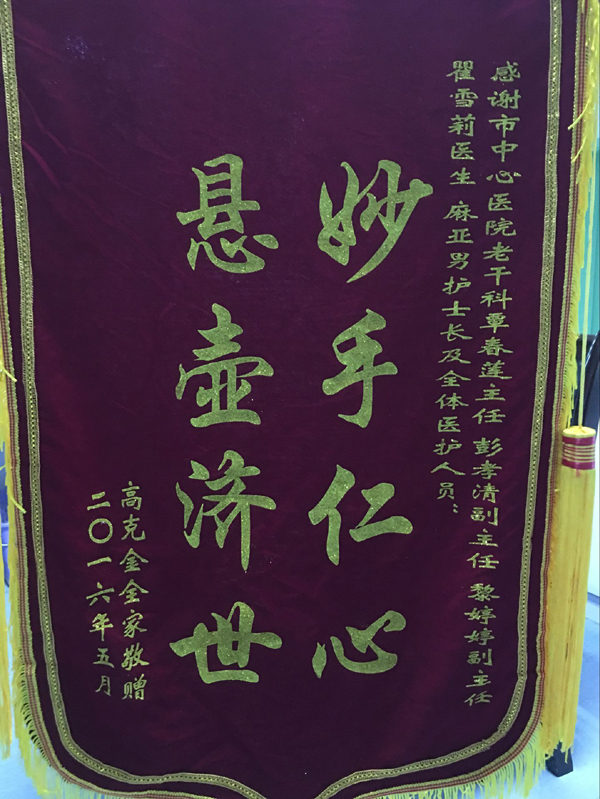 感谢市中心医院老干科覃春莲主任 彭孝清副主任 黎婷婷副主任
瞿雪莉医生 麻亚男护士长及全体医护人员：
妙手仁心
悬壶济世
高克金全家敬赠
二〇一六年五月